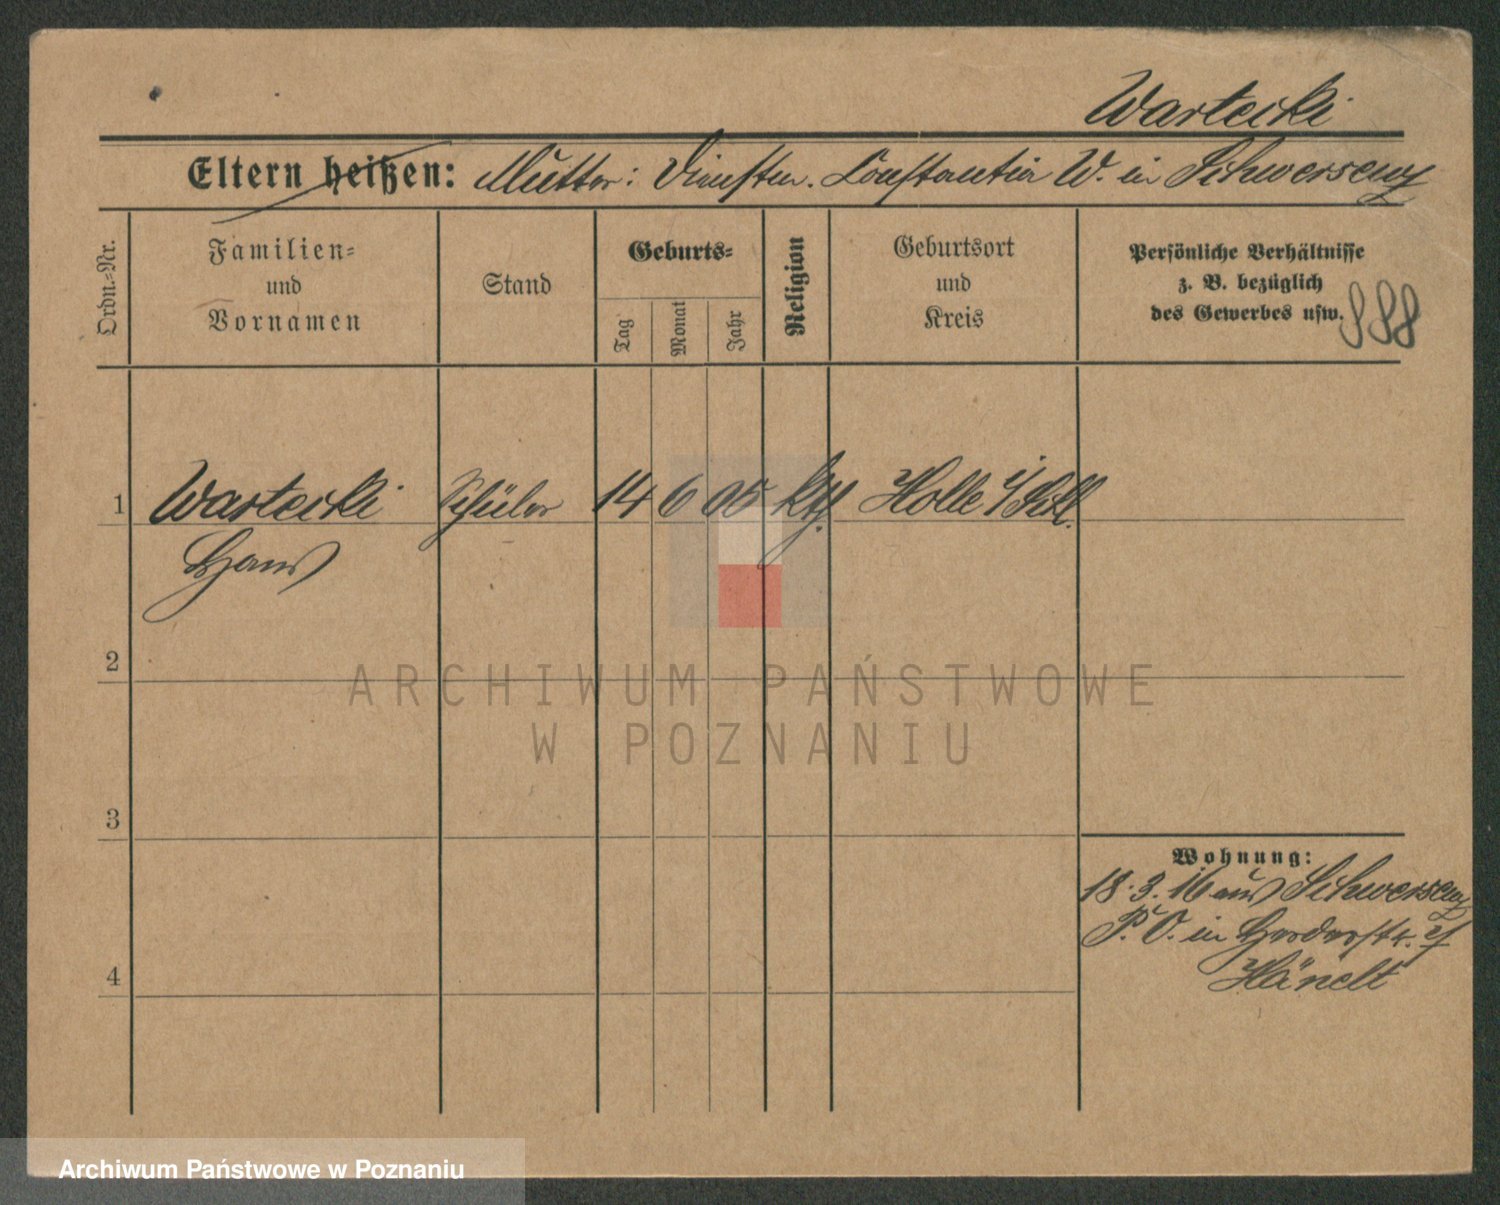 Wartecki
Eltern heißen: Mutter: Dienstm. Constantia W. in Schwersenz
Ordn.-Nr.
Familien-
und
Vornamen
Stand
Geburts-
Tag
Monat
Jahr
Religion
Geburtsort
und
Kreis
Persönliche Verhältnisse
z. B. bezüglich
des Gewerbes usw.
1 Wartecki Schüler 14 6 05 kth. Holle i/Schl.
Hans
2
ARCHIWUM PAŃSTWOWE
W POZNANIU
3
Wohnung:
18.3.16 aus Schwersenz
P. O. in Herderstr.
4
Hänelt
Archiwum Państwowe w Poznaniu